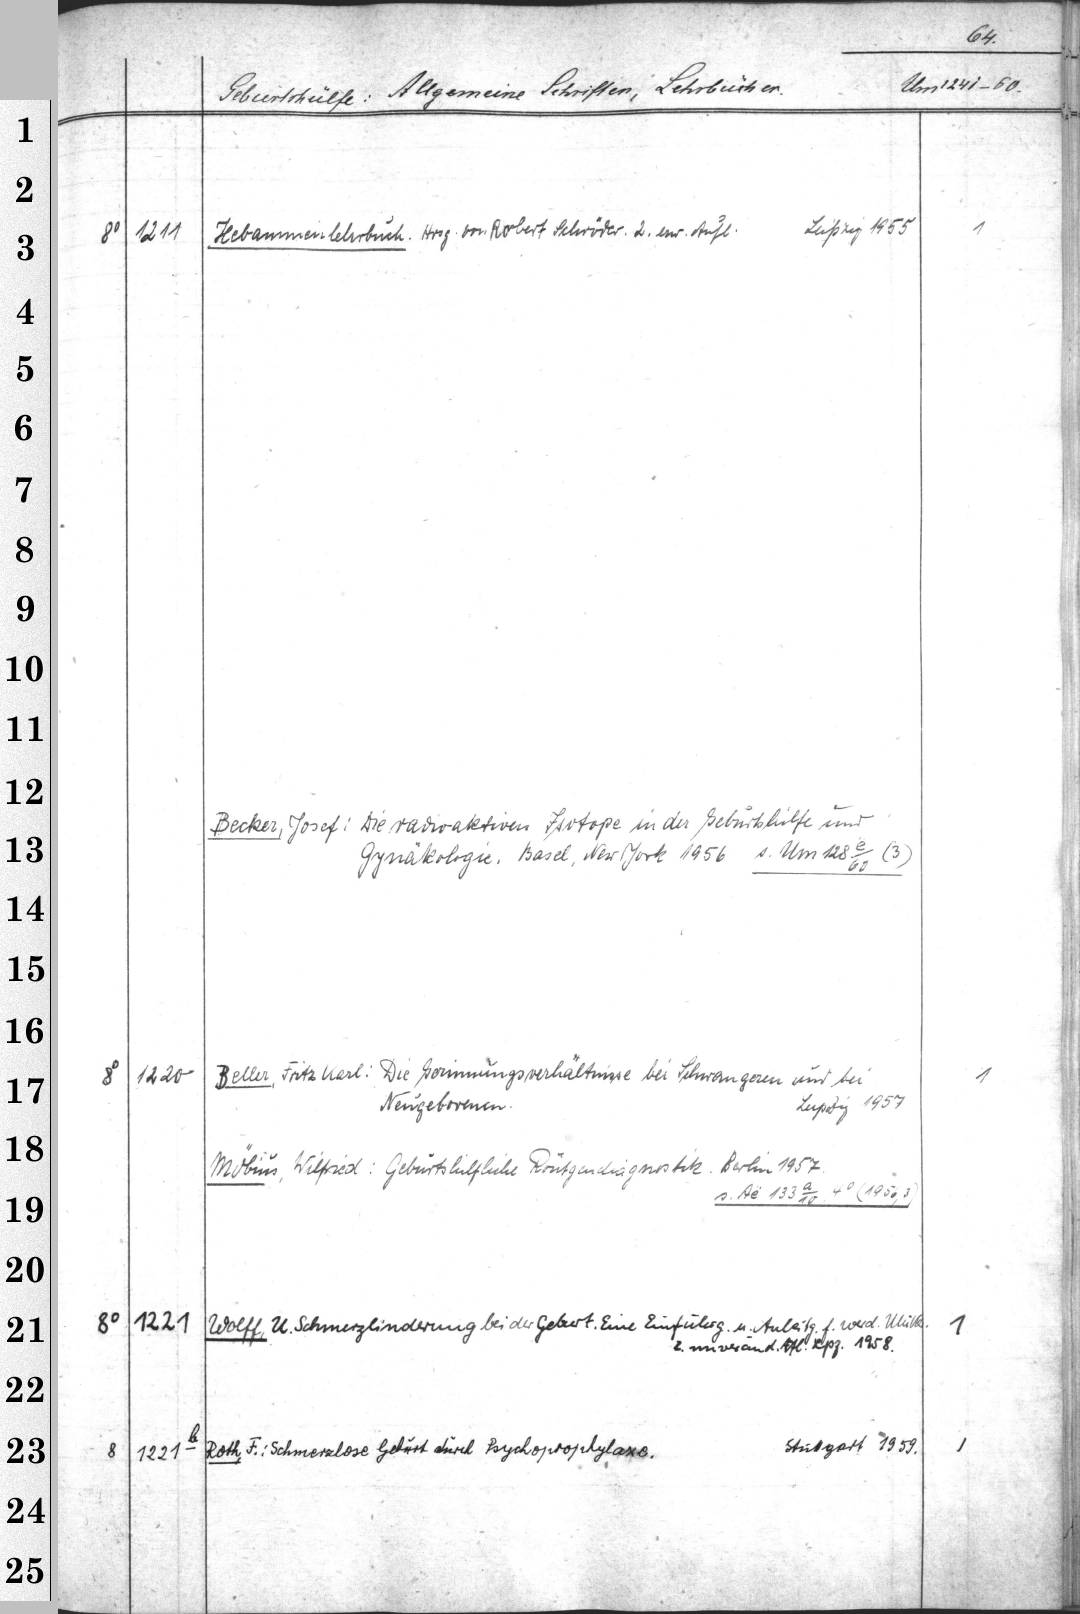 64.
Geburtshülfe: Allgemeine Schriften, Lehrbücher. Um 1241-60.
1
2
3 8° 1211 Hebammenlehrbuch. Hrsg. von Robert Schröder. 2. erw. Aufl. Leipzig 1955 1
4
5
6
7
8
9
10
11
12
Becker, Josef: Die radioaktiven Isotope in der Geburtshilfe und
13 Gynäkologie. Basel, New York 1956 s. Um 128 e/60 (3)
14
15
16
8° 1220 Beller, Fritz Karl: Die Gerinnungsverhältnisse bei Schwangeren und bei 1
17 Neugeborenen. Leipzig 1957
18 Möbius, Wilfried: Geburtshilfliche Röntgendiagnostik. Berlin 1957
19 s. Ae 133 a/10 4° (1956,3)
20
21 8° 1221 Wolff, U. Schmerzlinderung bei der Geburt. Eine Einführg. u. Anleitg. f. werd. 1
2. unveränd. Afl. Lpz. 1958.
22
23 8 1221 b Roth, F.: Schmerzlose Geburt durch Psychoprophylaxe. Stuttgart 1959. 1
24
25